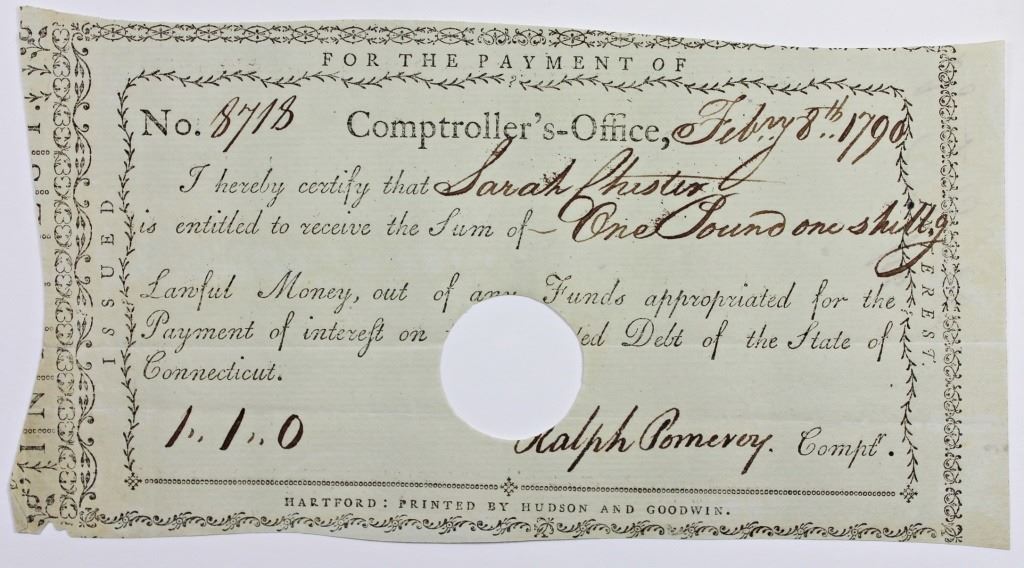 FOR THE PAYMENT OF
No. 8718 Comptroller's-Office, Febry 8th. 1790
I hereby certify that Sarah Chester
is entitled to receive the Sum of - One Pound one shill.g
Lawful Money, out of any Funds appropriated for the
Payment of interest on ed Debt of the State of
Connecticut.
1,, 1,, 0
Ralph Pomeroy. Comptr.
HARTFORD: PRINTED BY HUDSON AND GOODWIN.
ISSUED
EREST.